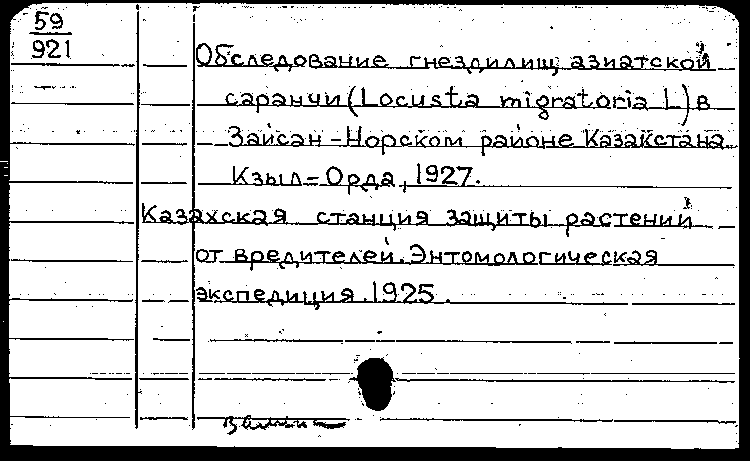 59
921
Обследование гнездилищ азиатской
саранчи (Locusta migratoria L) в
Зайсан-Норском районе Казакстана
Кзыл=Орда, 1927.
Казахская станция защиты растений
от вредителей. Энтомологическая
экспедиция. 1925.